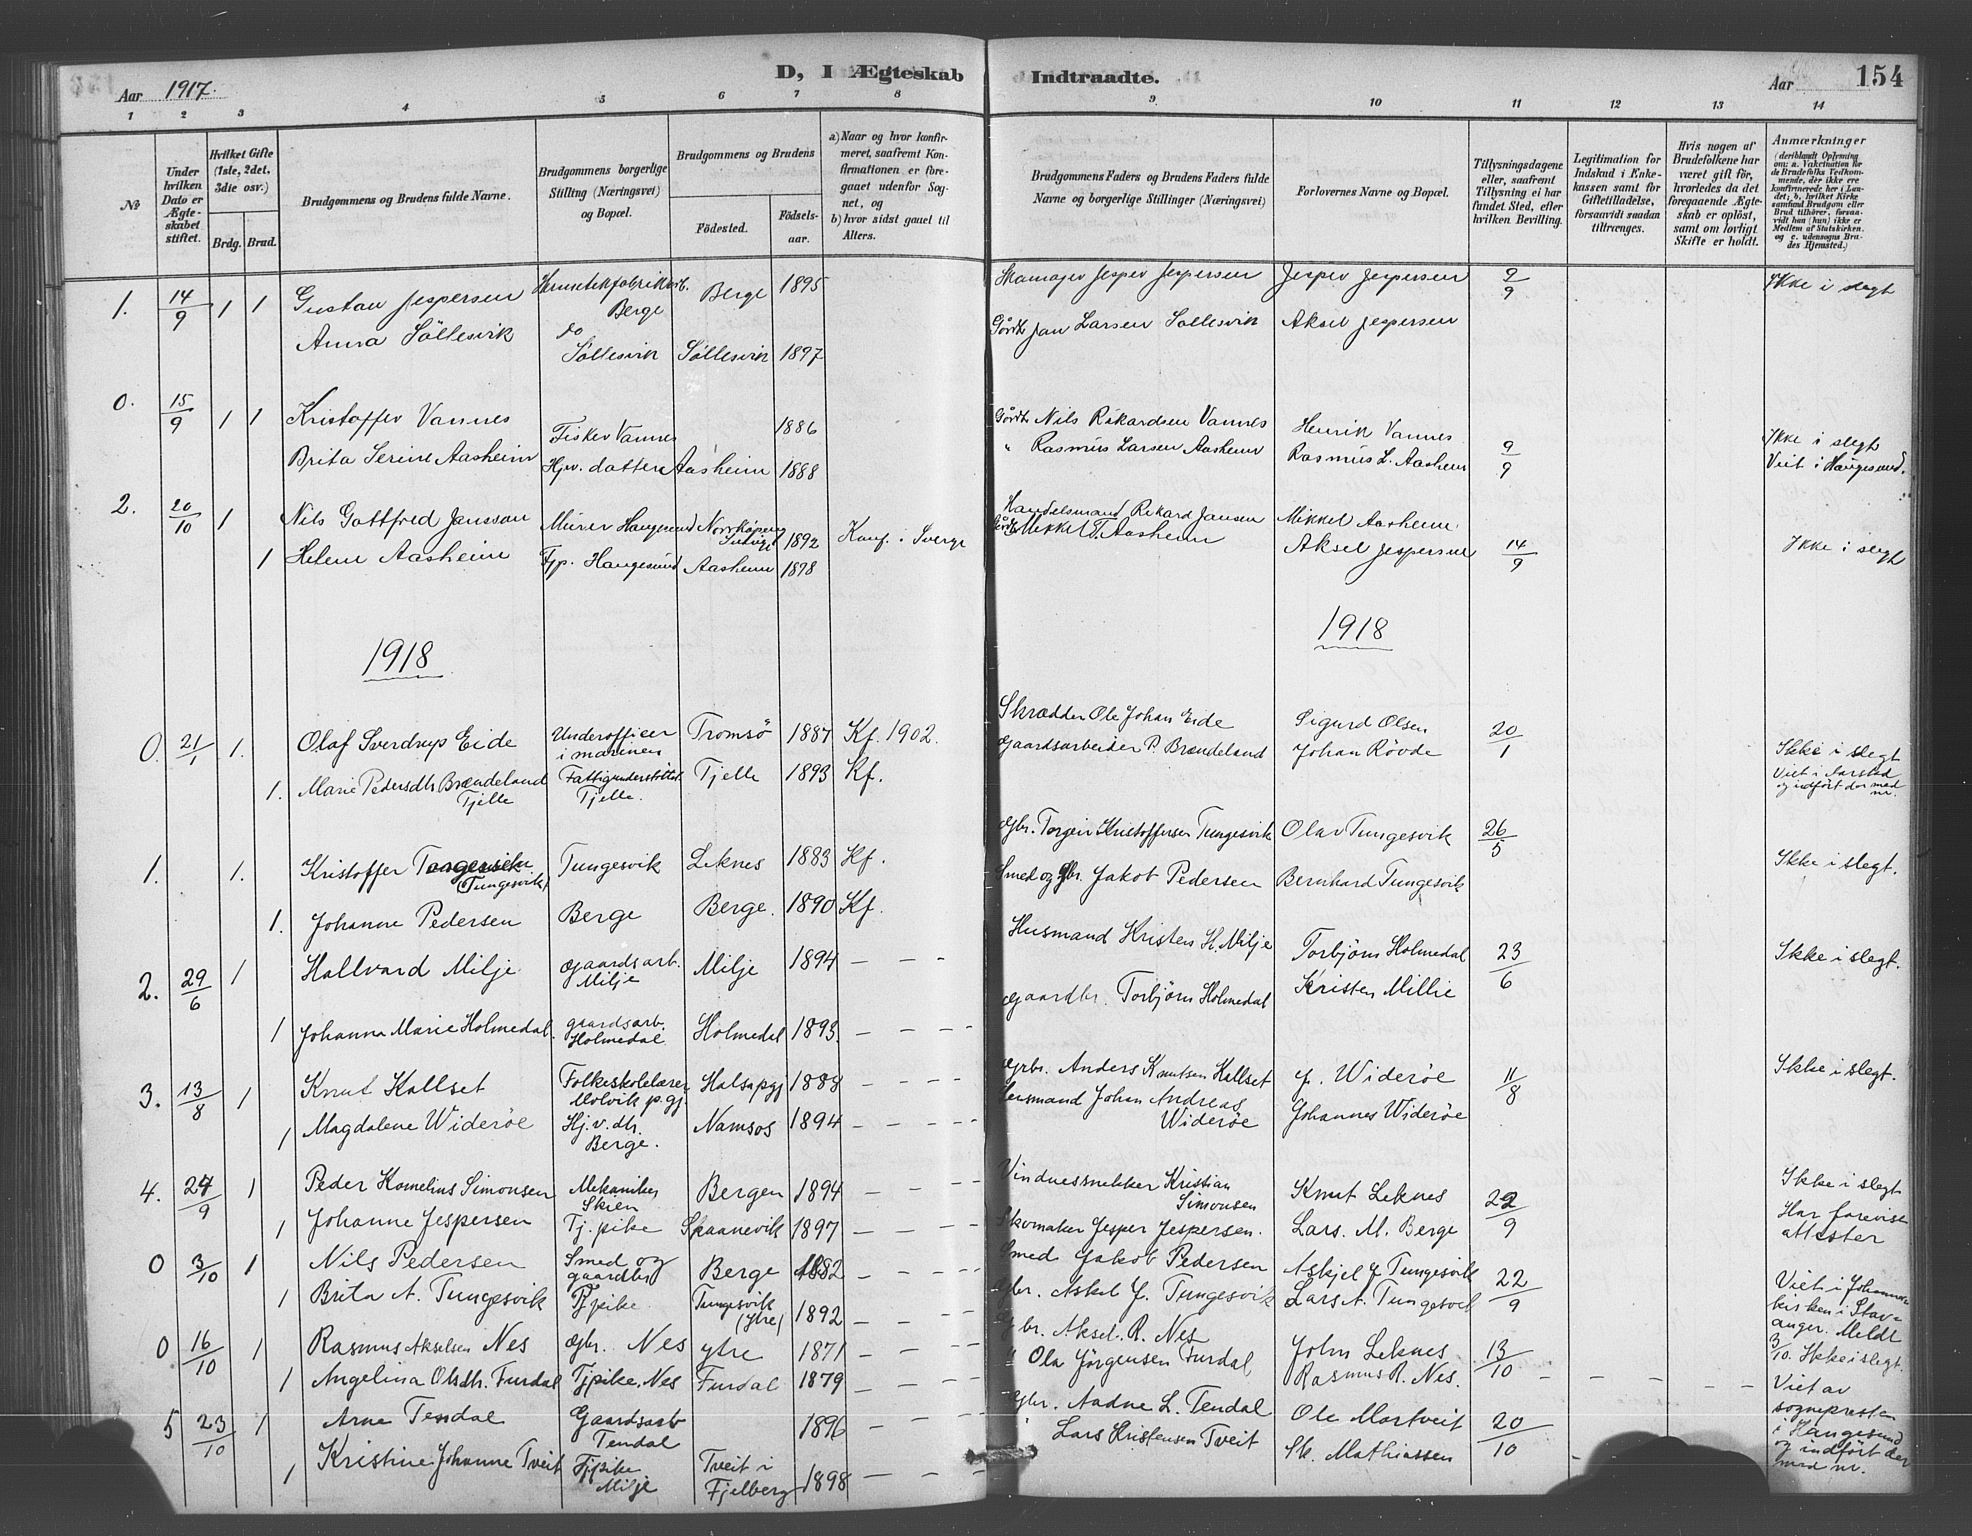 Aar 1917.
D, I Ægteskab Indtraadte.
Aar
154
1 2 3 4 5 6 7 8 9 10 11 12 13 14
№
Under hvilken Dato er Ægteskabet stiftet.
Hvilket Gifte (1ste, 2det, 3die osv.)
Brdg. Brud.
Brudgommens og Brudens fulde Navne.
Brudgommens borgerlige Stilling (Næringsvei) og Bopæl.
Brudgommens og Brudens
Fødested.
Fødselsaar.
a) Naar og hvor konfirmeret, saafremt Konfirmationen er foregaaet udenfor Sognet, og
b) hvor sidst gaaet til Alters.
Brudgommens Faders og Brudens Faders fulde Navne og borgerlige Stillinger (Næringsvei)
Forlovernes Navne og Bopæl.
Tillysningsdagene eller, saafremt Tillysning ei har fundet Sted, efter hvilken Bevilling.
Legitimation for Indskud i Enkekassen samt for Giftetilladelse, forsaavidt saadan tiltrænges.
Hvis nogen af Brudefolkene har været gift før, hvorledes da det foregaaende Ægteskab er opløst, samt om lovligt Skifte er holdt.
Anmærkninger
(deriblandt Oplysning om: a. Vakcination for de Brudefolks Vedkommende, der ikke ere konfirmerede her i Landet; b. hvilket Kirkesamfund Brudgom eller Brud tilhører, forsaavidt han (hun) ikke er Medlem af Statskirken. og c. udensogns Brudes Hjemsted.)
1. 14/9 1 1 Gustav Jespersen Berge Berge 1895 Jesper Jespersen Jesper Jespersen 9/9 Ikke i slegt
Anna Söllesvik do Söllesvik Söllesvik 1897 Gårdb. Jan Larsen Söllesvik Aksel Jespersen
0. 15/9 1 1 Kristoffer Vannes Fisker Vannes 1886 Gårdb. Nils Rikardsen Vannes Henrik Vannes Ikke i slegt
Brita Serine Aasheim Hjv. datter Aasheim 1888 " Rasmus Larsen Aasheim Rasmus L. Aasheim 9/9 Viet i Haugesund.
2. 20/10 1 Nils Gottfred Jansson Murer Haugesund Norrköping 1892 Konf. i Sverge Handelsmand Rikard Jansen Mikkel Aasheim.
1 Helene Aasheim Tjp. Haugesund Aasheim 1898 Gårdb. Mikkel T. Aasheim Aksel Jespersen 14/9 Ikke i slegt
1918 1918
0. 21/1 1. Olaf Sverdrup Eide Underofficer i marinen Tromsö 1887 Kf. 1902. Skrædder Ole Johan Eide Sigurd Olsen 20/1
1. Marie Pedersdtr Brændeland Tjelle Fattigunderstöttet Tjelle. Tjelle 1893 Kf. Gaardsarbeider P. Brændeland Johan Rövde Ikke i slegt Viet i Aarstad og indfört der med nr.
1. 1. Kristoffer (Tungesvik) Tungesvik Leknes 1883 Kf. Gbr. Torgein Kristoffersen Tungesvik Olav Tungesvik 26/5
1. Johanne Pedersen Berge Berge. 1890 Kf. Smed og Gbr. Jakob Pedersen Bernhard Tungesvik Ikke i slegt.
2. 29/6 1 Hallvard Milje Gaardsarb. Milje Milje 1894 — - - Husmand Kristen H. Milje Torbjörn Holmedal 23/6 Ikke i slegt.
1 Johanna Marie Holmedal gaardsarb. Holmedal Holmedal 1893. — — - - Gaardbr. Torbjörn Holmedal Kristen Millie
3. 13/8 1 Knut Kallset Folkeskolelærer Halsa pgj 1888 — — - - Gbr. Anders Knutsen Kallset J. Wideröe 11/8 Ikke i slegt.
1 Magdalene Wideröe Hj. v. dtr. Berge. Namsos 1894 — — - - Lensmand Johan Andreas Wideröe Johannes Wideröe
4. 24/9 1 Peder Kornelius Simonsen Mekaniker Skien Bergen 1894 — — - - Vindussnekker Kristian Simonsen Knut Leknes 22/9 Ikke i slegt
1 Johanne Jespersen Tj. pike Skaanevik 1897 — — - - Skomaker Jesper Jespersen. Lars. M. Berge Har forevist attester
0 3/10 1 Nils Pedersen Smed og gaardbr. Berge 1882 — — - - Smed Jakob Pedersen Askjel J Tungesvik
1 Brita A. Tungesvik Tjpike. Tungesvik (ytre) 1892 — — - - Gbr. Askel J. Tungesvik Lars A. Tungesvik 22/9 Viet i Johanneskirken i Stavanger. Meldt 3/10. Ikke i slegt.
0 16/10 1 Rasmus Akselsen Nes Gbr. Nes ytre 1871 — — - - Gbr. Aksel. R. Nes John Leknes 13/10
1 Angelina Olsdtr. Furdal Tjpike. Nes Furdal 1879 — — - - " Ola Jörgensen Furdal Rasmus R. Nes.
5 23/10 1 Arne Tendal Gaardsarb Tendal 1896 — Gbr. Aadne L. Tendal Ole Mortveit 20/10 Viet av sognepresten i Haugesund og indfört der med nr.
1 Kristine Johanne Tveit Tjpike Milje Tveit i Fjelberg 1898 — — - - " Lars Kristensen Tveit St. Mathiassen